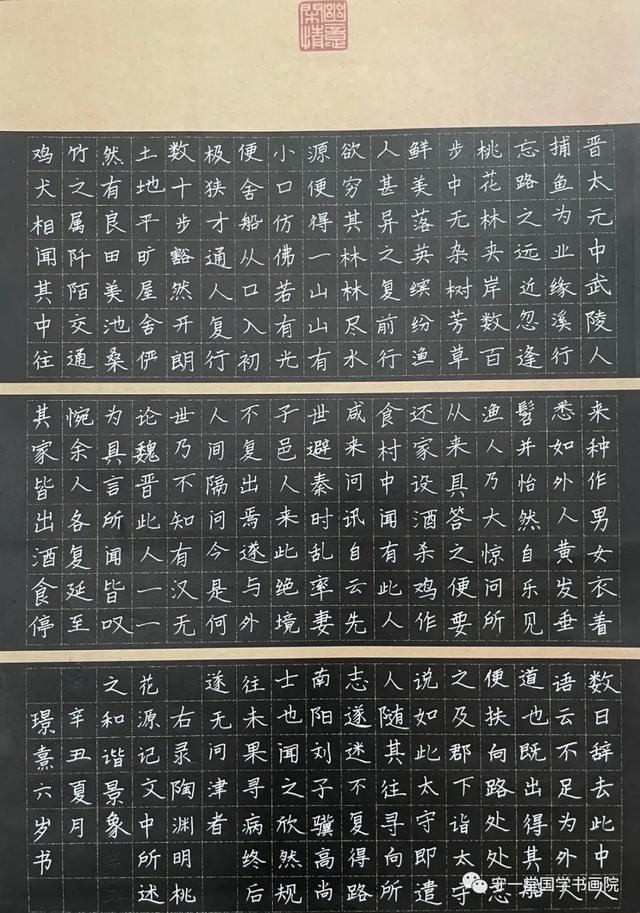 幽意闲情
晋太元中武陵人
捕鱼为业缘溪行
忘路之远近忽逢
桃花林夹岸数百
步中无杂树芳草
鲜美落英缤纷渔
人甚异之复前行
欲穷其林林尽水
源便得一山山有
小口仿佛若有光
便舍船从口入初
极狭才通人复行
数十步豁然开朗
土地平旷屋舍俨
然有良田美池桑
竹之属阡陌交通
鸡犬相闻其中往
来种作男女衣着
悉如外人黄发垂
髫并怡然自乐见
渔人乃大惊问所
从来具答之便要
还家设酒杀鸡作
食村中闻有此人
咸来问讯自云先
世避秦时乱率妻
子邑人来此绝境
不复出焉遂与外
人间隔问今是何
世乃不知有汉无
论魏晋此人一一
为具言所闻皆叹
惋余人各复延至
其家皆出酒食停
数日辞去此中人
语云不足为外人
道也既出得其船
便扶向路处处志
之及郡下诣太守
说如此太守即遣
人随其往寻向所
志遂迷不复得路
南阳刘子骥高尚
士也闻之欣然规
往未果寻病终后
遂无问津者
右录陶渊明桃
花源记文中所述
之和谐景象
辛丑夏月
璟熹六岁书
一堂国学书画院